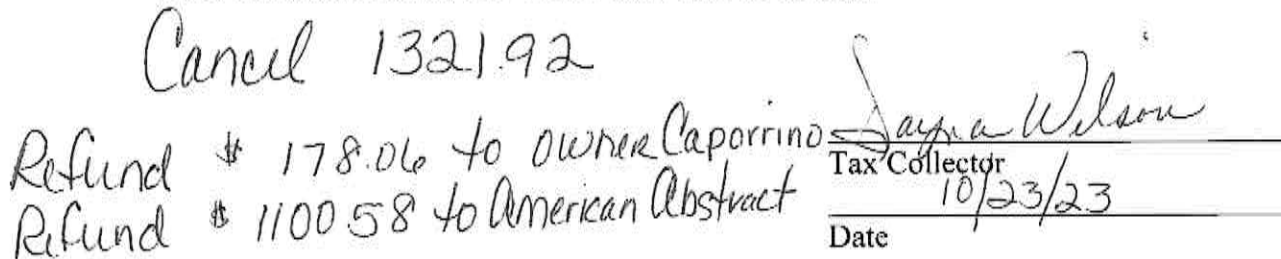 Cancel 1321.92
Refund $ 178.06 to owner Caporrino
Refund $ 1100 58 to American Abstract
Jayna Wilson
Tax Collector
10/23/23
Date